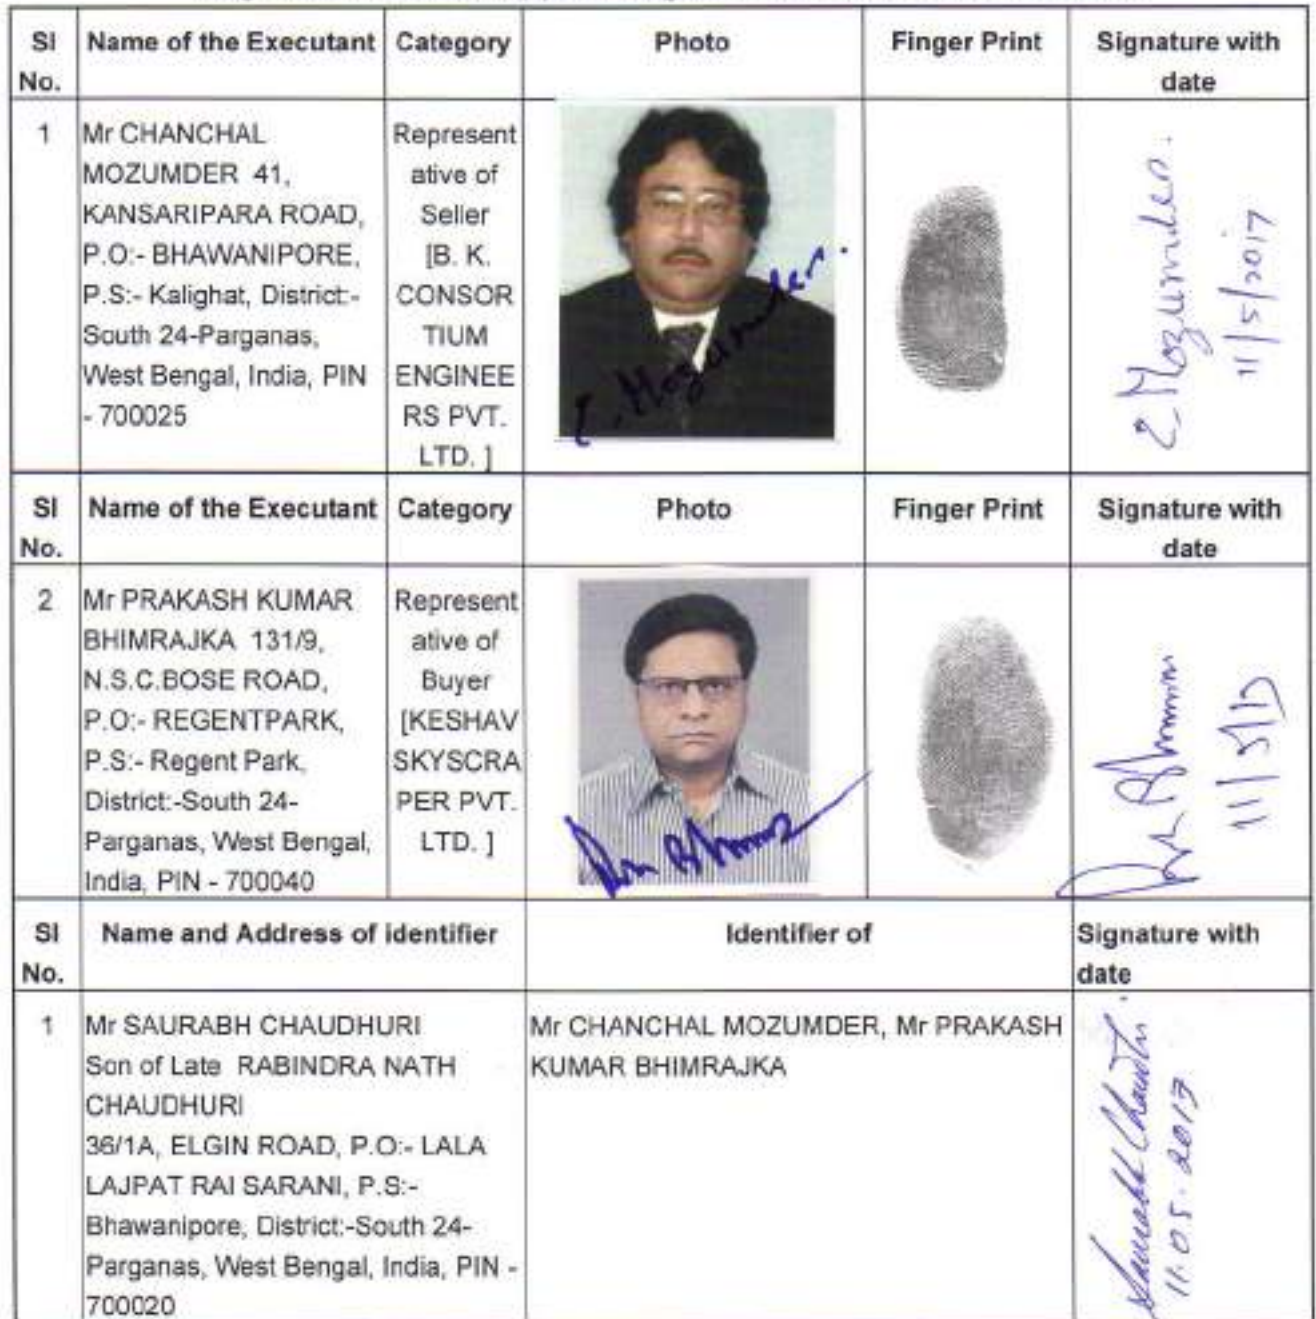 Sl No. Name of the Executant Category Photo Finger Print Signature with date
1
Mr CHANCHAL
MOZUMDER 41,
KANSARIPARA ROAD,
P.O:- BHAWANIPORE,
P.S:- Kalighat, District:-
South 24-Parganas,
West Bengal, India, PIN
- 700025
Represent
ative of
Seller
[B. K.
CONSOR
TIUM
ENGINEE
RS PVT.
LTD. ]
C. Mozumder.
C. Mozumder.
11/5/2017
Sl No. Name of the Executant Category Photo Finger Print Signature with date
2
Mr PRAKASH KUMAR
BHIMRAJKA 131/9,
N.S.C.BOSE ROAD,
P.O:- REGENTPARK,
P.S:- Regent Park,
District:-South 24-
Parganas, West Bengal,
India, PIN - 700040
Represent
ative of
Buyer
[KESHAV
SKYSCRA
PER PVT.
LTD. ]
11/5/17
Sl No. Name and Address of identifier Identifier of Signature with date
1
Mr SAURABH CHAUDHURI
Son of Late RABINDRA NATH
CHAUDHURI
36/1A, ELGIN ROAD, P.O:- LALA
LAJPAT RAI SARANI, P.S:-
Bhawanipore, District:-South 24-
Parganas, West Bengal, India, PIN -
700020
Mr CHANCHAL MOZUMDER, Mr PRAKASH
KUMAR BHIMRAJKA
Saurabh Chaudhuri.
11.05.2017